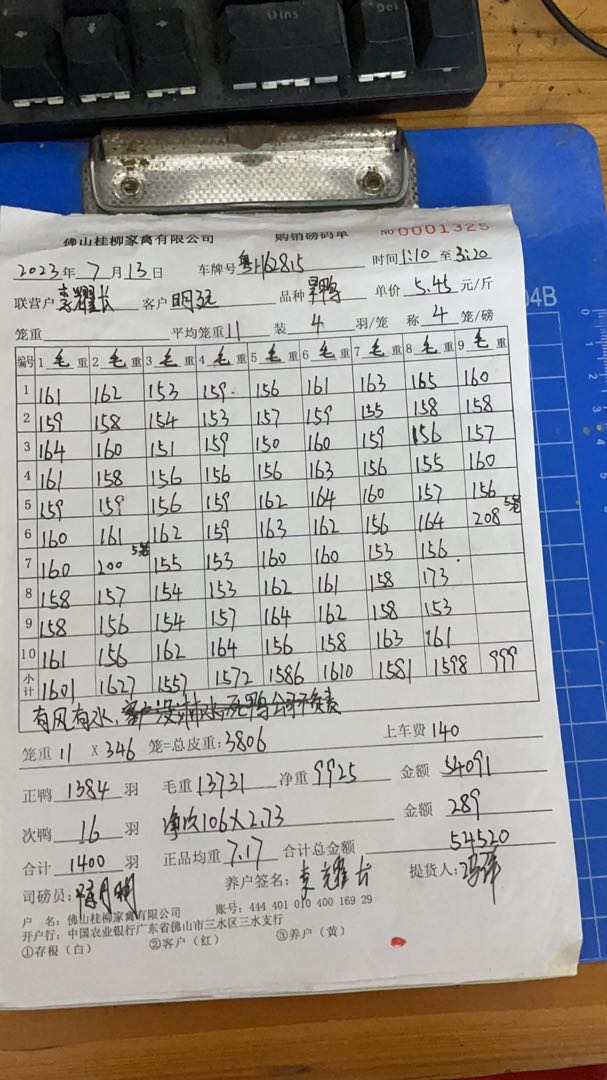 Ins
Del
佛山桂柳家禽有限公司 购销磅码单 NO 0001325
2023年7月13日 车牌号 时间1:10至3:20
联营户 李耀长 客户 明记 品种 单价 5.45 元/斤
04B
笼重 平均笼重11 装 4 羽/笼 称 4 笼/磅
编号 1 毛重 2 毛重 3 毛重 4 毛重 5 毛重 6 毛重 7 毛重 8 毛重 9 毛重
1 161 162 153 159 156 161 163 165 160
2 159 158 154 153 157 159 155 158 158
3 164 160 151 159 150 160 159 156 157
4 161 158 156 156 156 163 156 155 160
5 159 159 156 159 162 164 160 157 156
6 160 161 162 159 163 162 156 164 208 5笼
7 160 200 5笼 155 153 160 160 153 156
8 158 157 154 153 162 161 158 173
9 158 156 154 157 164 162 158 153
10 161 156 162 164 156 158 163 161
小计 1601 1627 1557 1572 1586 1610 1581 1598 999
有风有水,
笼重 11 X 346 笼=总皮重:3806 上车费 140
正鸭 1384 羽 毛重 13731 净重 9925 金额 54091
次鸭 16 羽 净次106×2.73 金额 289
合计 1400 羽 正品均重 7.17 合计总金额 54520
司磅员: 养户签名: 李耀长 提货人:
户 名: 佛山桂柳家禽有限公司 账号: 444 401 010 400 169 29
开户行: 中国农业银行广东省佛山市三水区三水支行
①存根（白） ②客户（红） ③养户（黄）